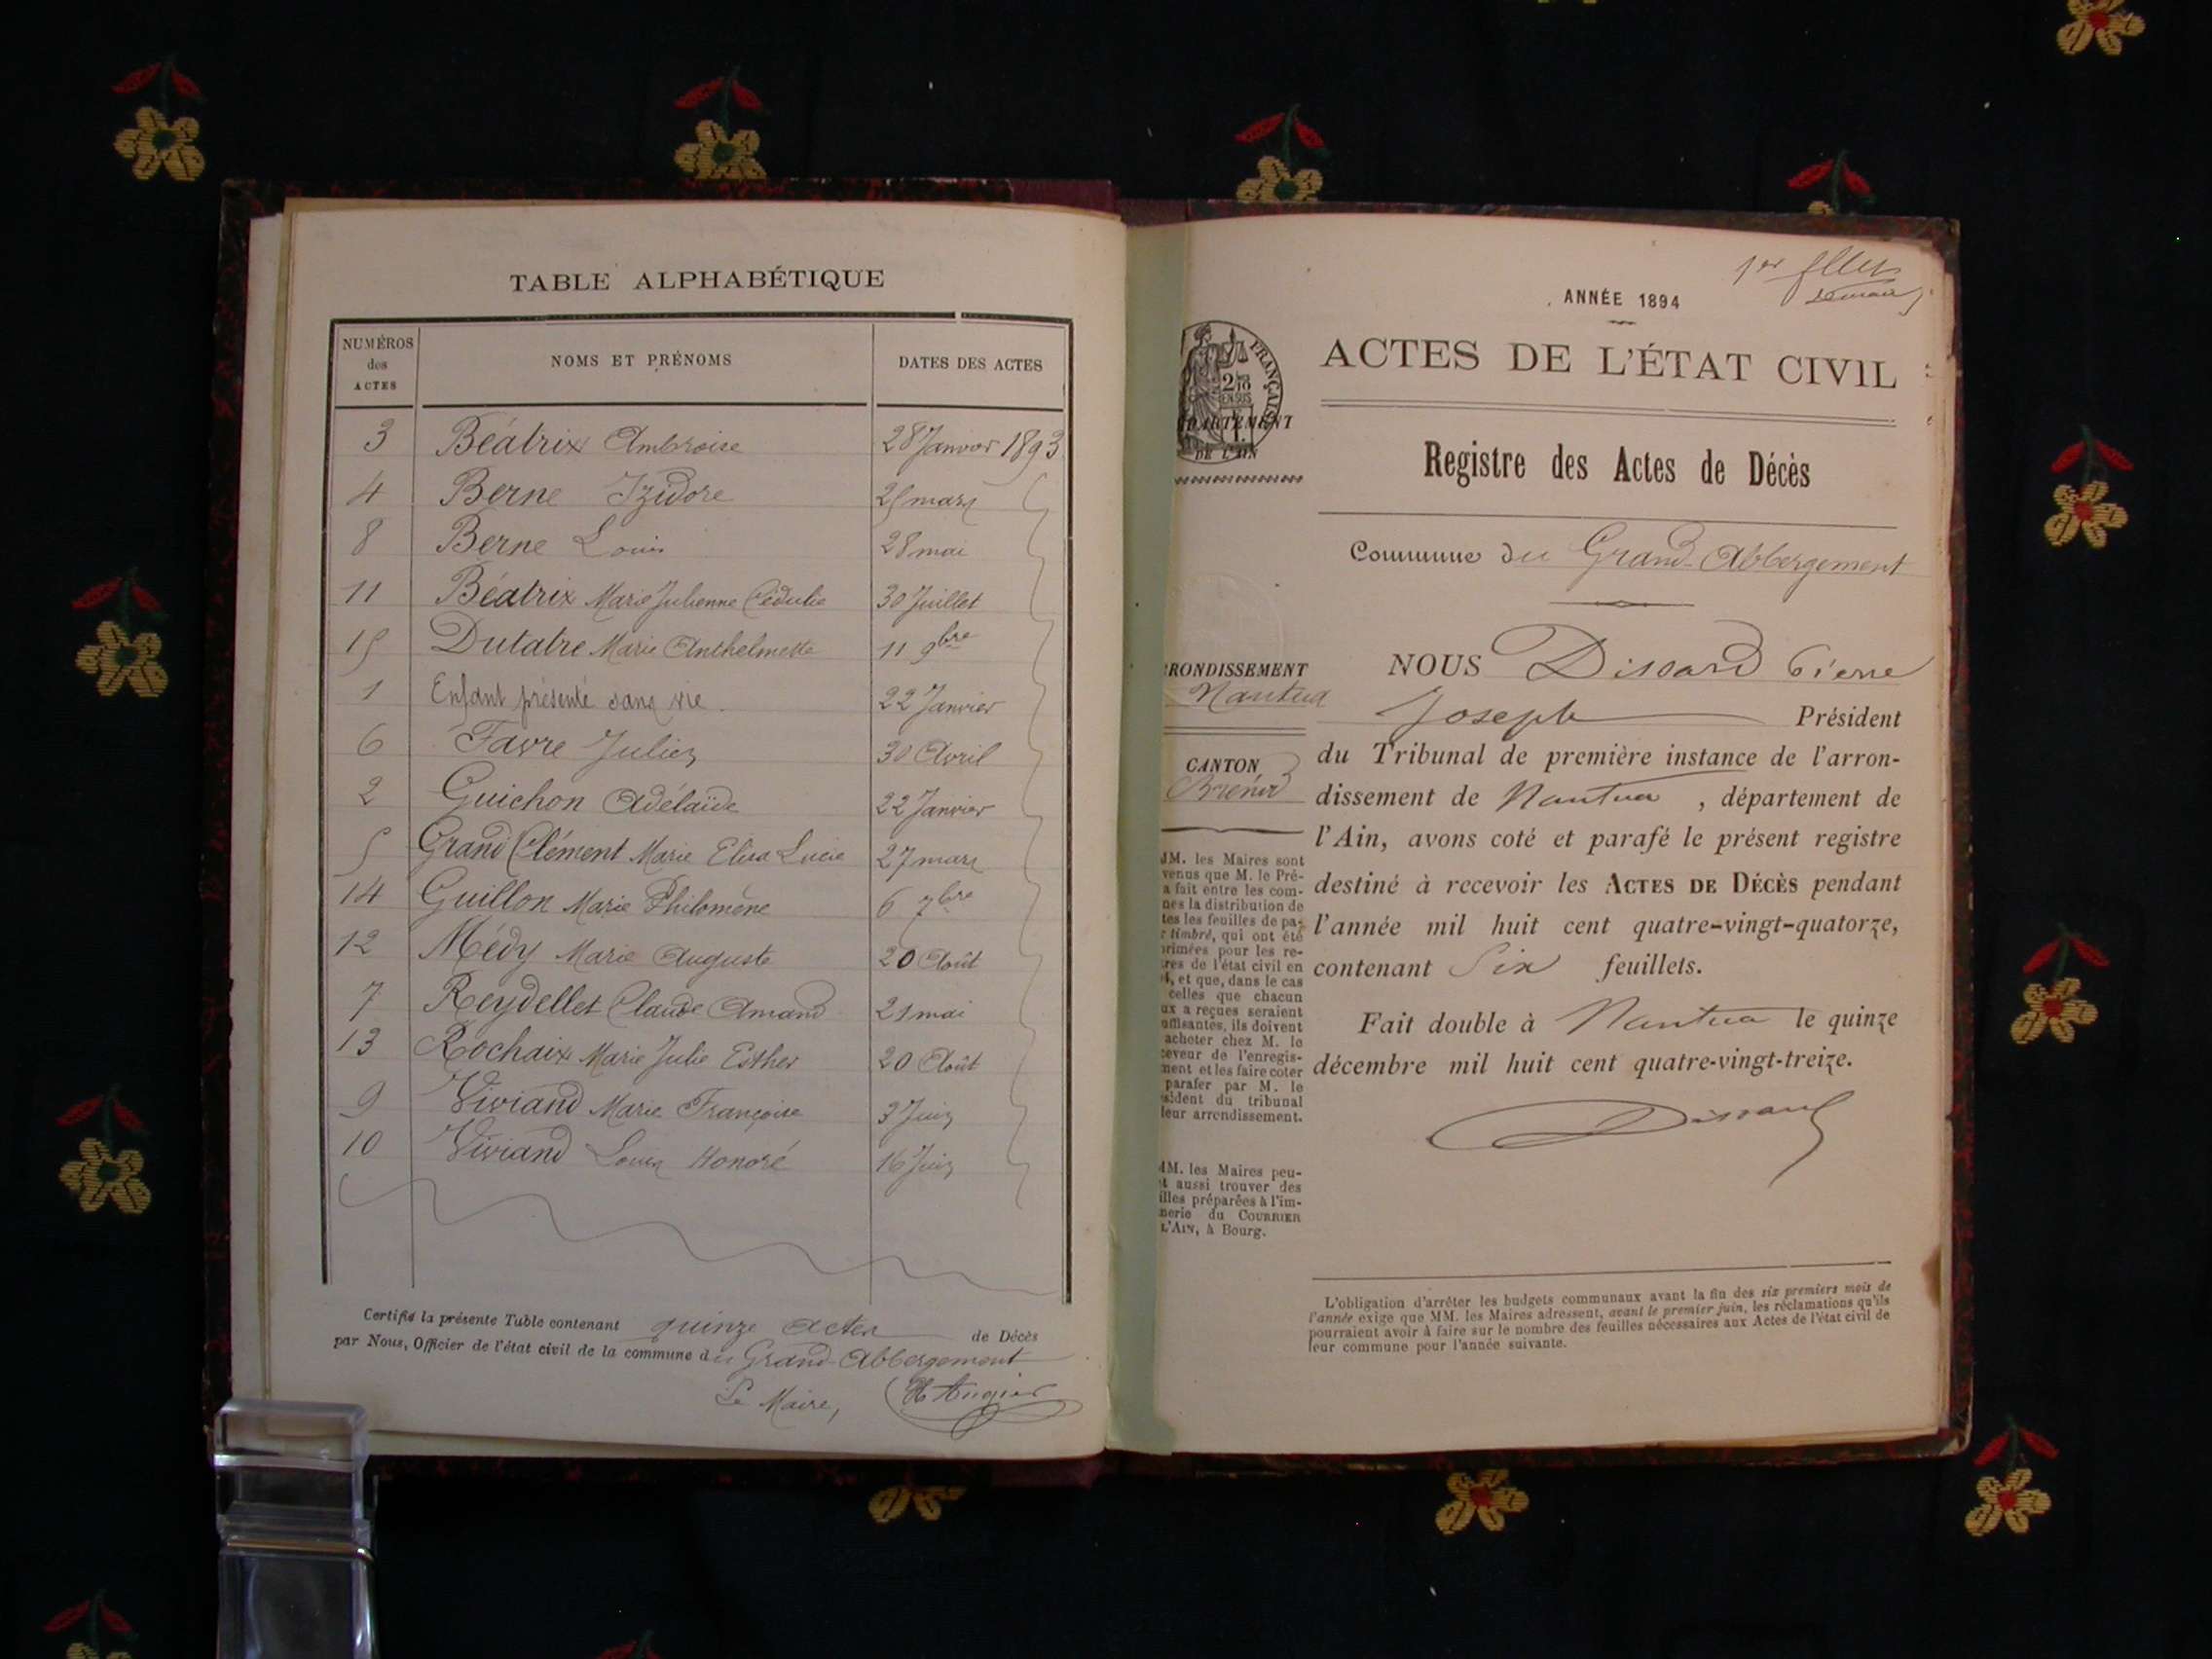 TABLE ALPHABÉTIQUE
NUMÉROS des ACTES NOMS ET PRÉNOMS DATES DES ACTES
3 Béatrix Ambroise 28 Janvier 1893
4 Berne Izidore 25 mars
8 Berne Louis 28 mai
11 Béatrix Marie Julienne Cédulie 30 Juillet
15 Dutatre Marie Anthelmette 11 9bre
1 Enfant présenté sans vie. 22 Janvier
6 Favre Julien 30 Avril
2 Guichon Adélaïde 22 Janvier
5 Grand Clément Marie Elisa Lucie 27 mars
14 Guillon Marie Philomène 6 7bre
12 Médy Marie Auguste 20 Août
7 Reydellet Claude Amand 21 mai
13 Rochaix Marie Julie Esther 20 Août
9 Viviand Marie Françoise 3 Juin
10 Viviand Louis Honoré 16 Juin
Certifié la présente Table contenant quinze actes de Décès
par Nous, Officier de l'état civil de la commune du Grand-Abbergement
Le Maire, Augier
1er
ANNÉE 1894
ACTES DE L'ÉTAT CIVIL
FRANÇAIS
2/10
EN SUS
DE L'AIN
Registre des Actes de Décès
Commune du Grand-Abbergement
RONDISSEMENT
Nantua
CANTON
Brénod
MM. les Maires sont
venus que M. le Pré-
a fait entre les com-
nes la distribution de
tes les feuilles de pa-
r timbré, qui ont été
primées pour les re-
res de l'état civil en
4, et que, dans le cas
celles que chacun
ux a reçues seraient
uffisantes, ils doivent
acheter chez M. le
ceveur de l'enregis-
ment et les faire coter
parafer par M. le
sident du tribunal
leur arrondissement.
MM. les Maires peu-
t aussi trouver des
illes préparées à l'im-
merie du COURRIER
L'AIN, à Bourg.
NOUS Dissard Pierre
Joseph Président
du Tribunal de première instance de l'arron-
dissement de Nantua, département de
l'Ain, avons coté et parafé le présent registre
destiné à recevoir les ACTES DE DÉCÈS pendant
l'année mil huit cent quatre-vingt-quatorze,
contenant Six feuillets.
Fait double à Nantua le quinze
décembre mil huit cent quatre-vingt-treize.
Dissard
L'obligation d'arrêter les budgets communaux avant la fin des six premiers mois de
l'année exige que MM. les Maires adressent, avant le premier juin, les réclamations qu'ils
pourraient avoir à faire sur le nombre des feuilles nécessaires aux Actes de l'état civil de
leur commune pour l'année suivante.